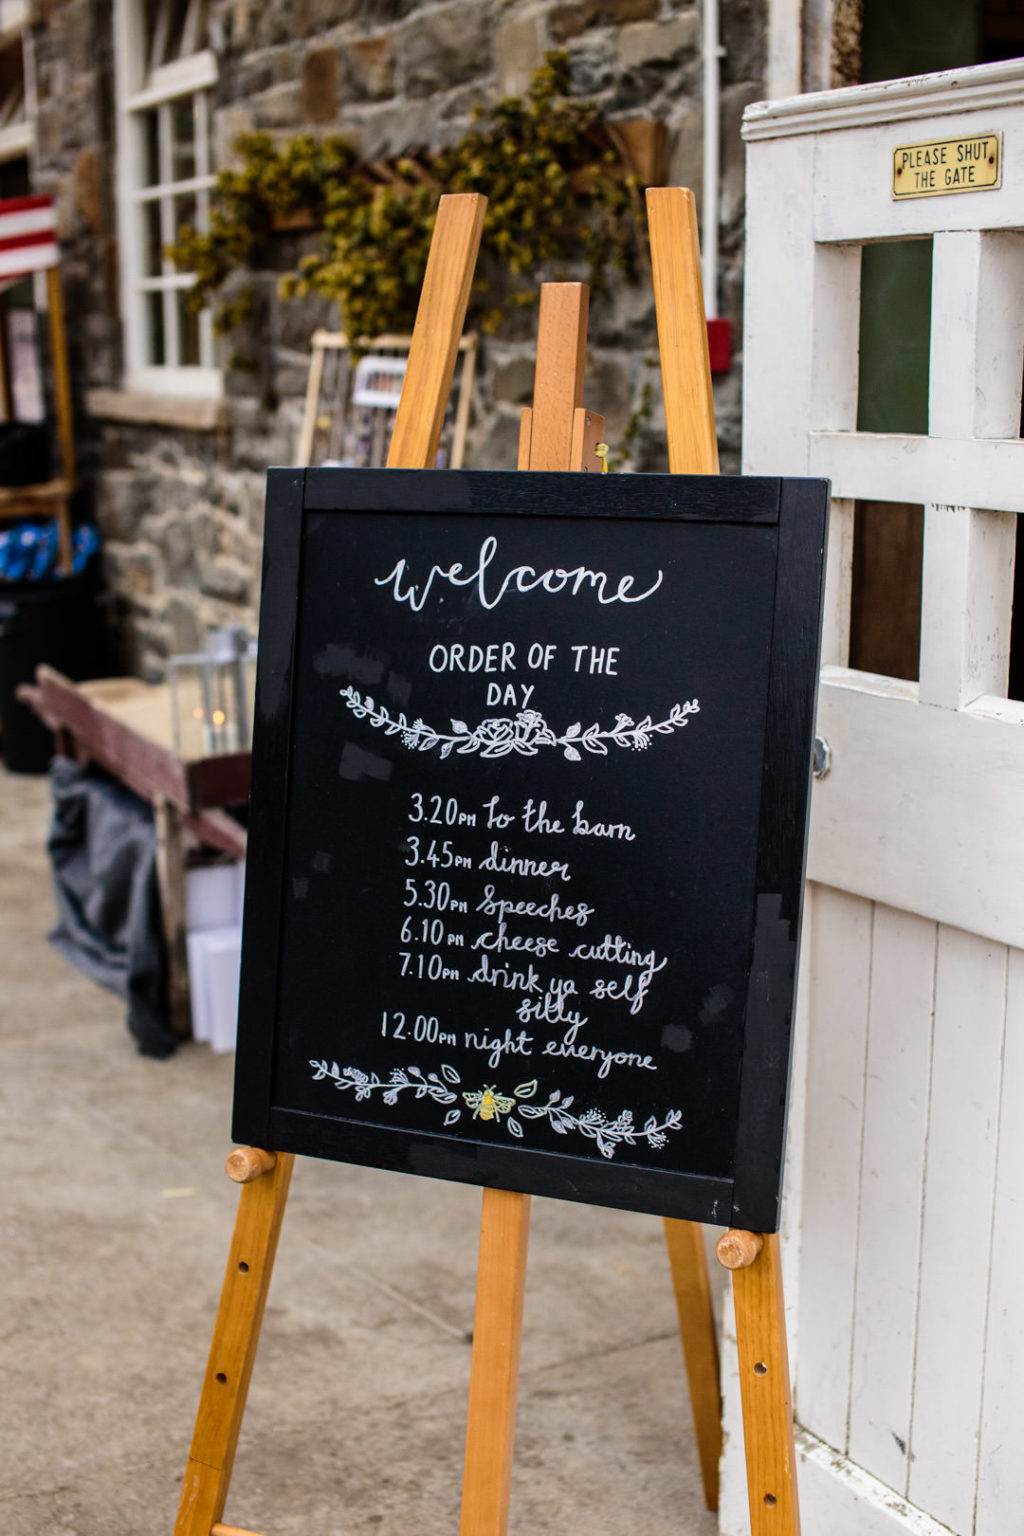 PLEASE SHUT
THE GATE
welcome
ORDER OF THE
DAY
3.20PM to the barn
3.45PM dinner
5.30PM Speeches
6.10PM cheese cutting
7.10PM drink ya self
silly
12.00PM night everyone